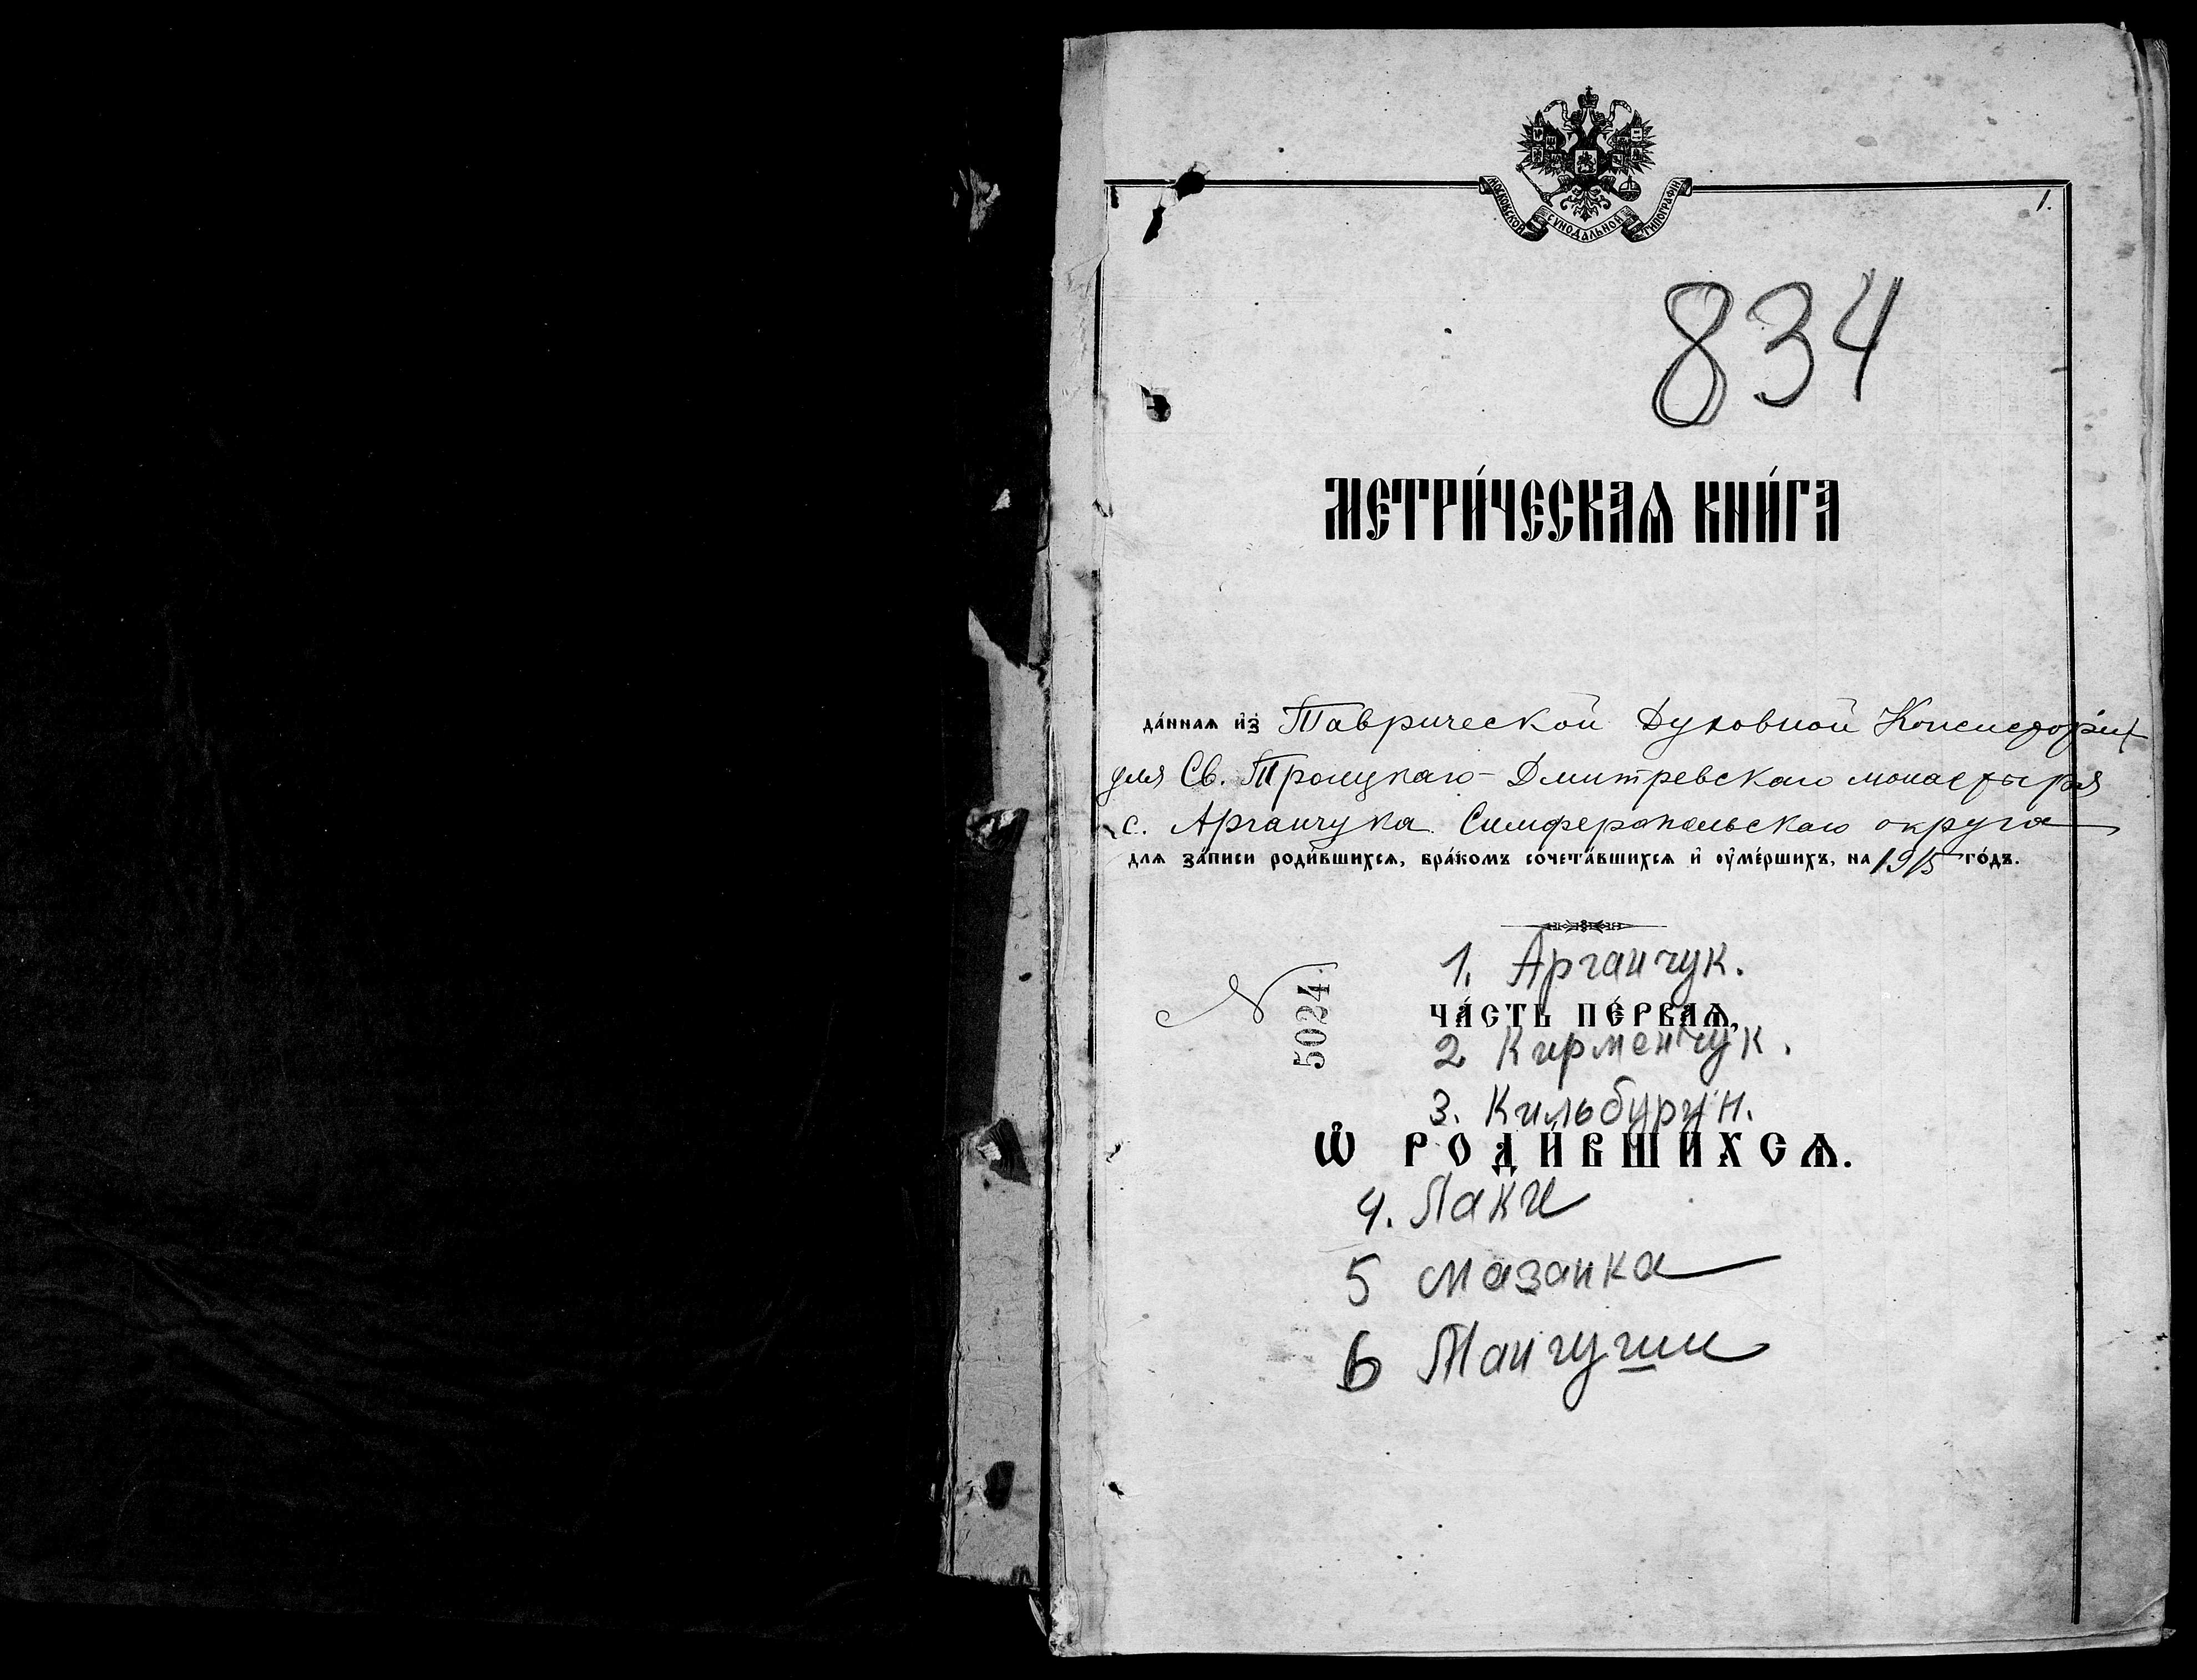 МОСКОВСКОЙ СѴНОДАЛЬНОЙ ТИПОГРАФІИ
1.
834
МЕТРИ́ЧЕСКАѦ КНИ́ГА
да́ннаѧ и҆з̾ Таврической Духовной Консисторіи
для Св. Троицкаго-Дмитревскаго монастыря
с. Арганчука Симферопольскаго округа
длѧ за́писи роди́вшихсѧ, бра́комъ сочета́вшихсѧ и҆ ᲂу҆ме́ршихъ, на 1915 го́дъ.
1. Арганчук.
ЧА́СТЬ ПЕ́РВАѦ,
N 5024.
2 Кирменчук.
3. Кильбурун.
Ѡ҆ РОДИ́ВШИХСѦ.
4. Лаки
5 Мазанка
6 Мангуши